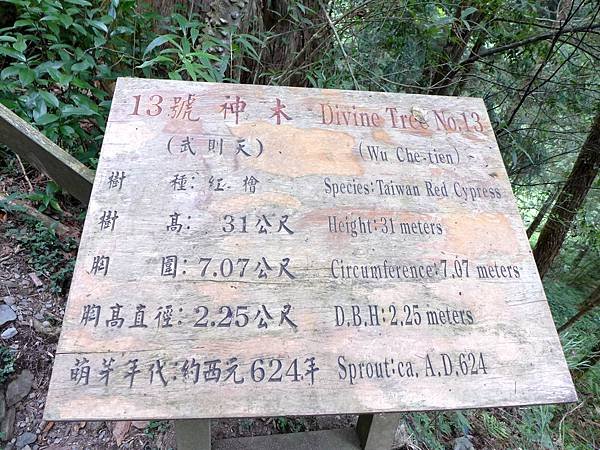 13號神木 Divine Tree No.13
(武則天) (Wu Che-tien)
樹種:紅檜 Species:Taiwan Red Cypress
樹高:31公尺 Height:31 meters
胸圍:7.07公尺 Circumference:7.07 meters
胸高直徑:2.25公尺 D.B.H:2.25 meters
萌芽年代:約西元624年 Sprout:ca. A.D.624